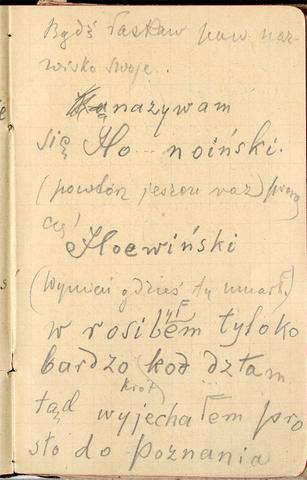 Bądź łaskaw paw naz-
wisko swoje..
nazywam
się Ho noiński.
(powtórz jeszcze raz) proszę
cię!
Hoewiński
(Wymień gdzieś ty umarł)
w rosibem tyloko
bardzo kot dztam
tąd wyjechałem pro
sto do Poznania